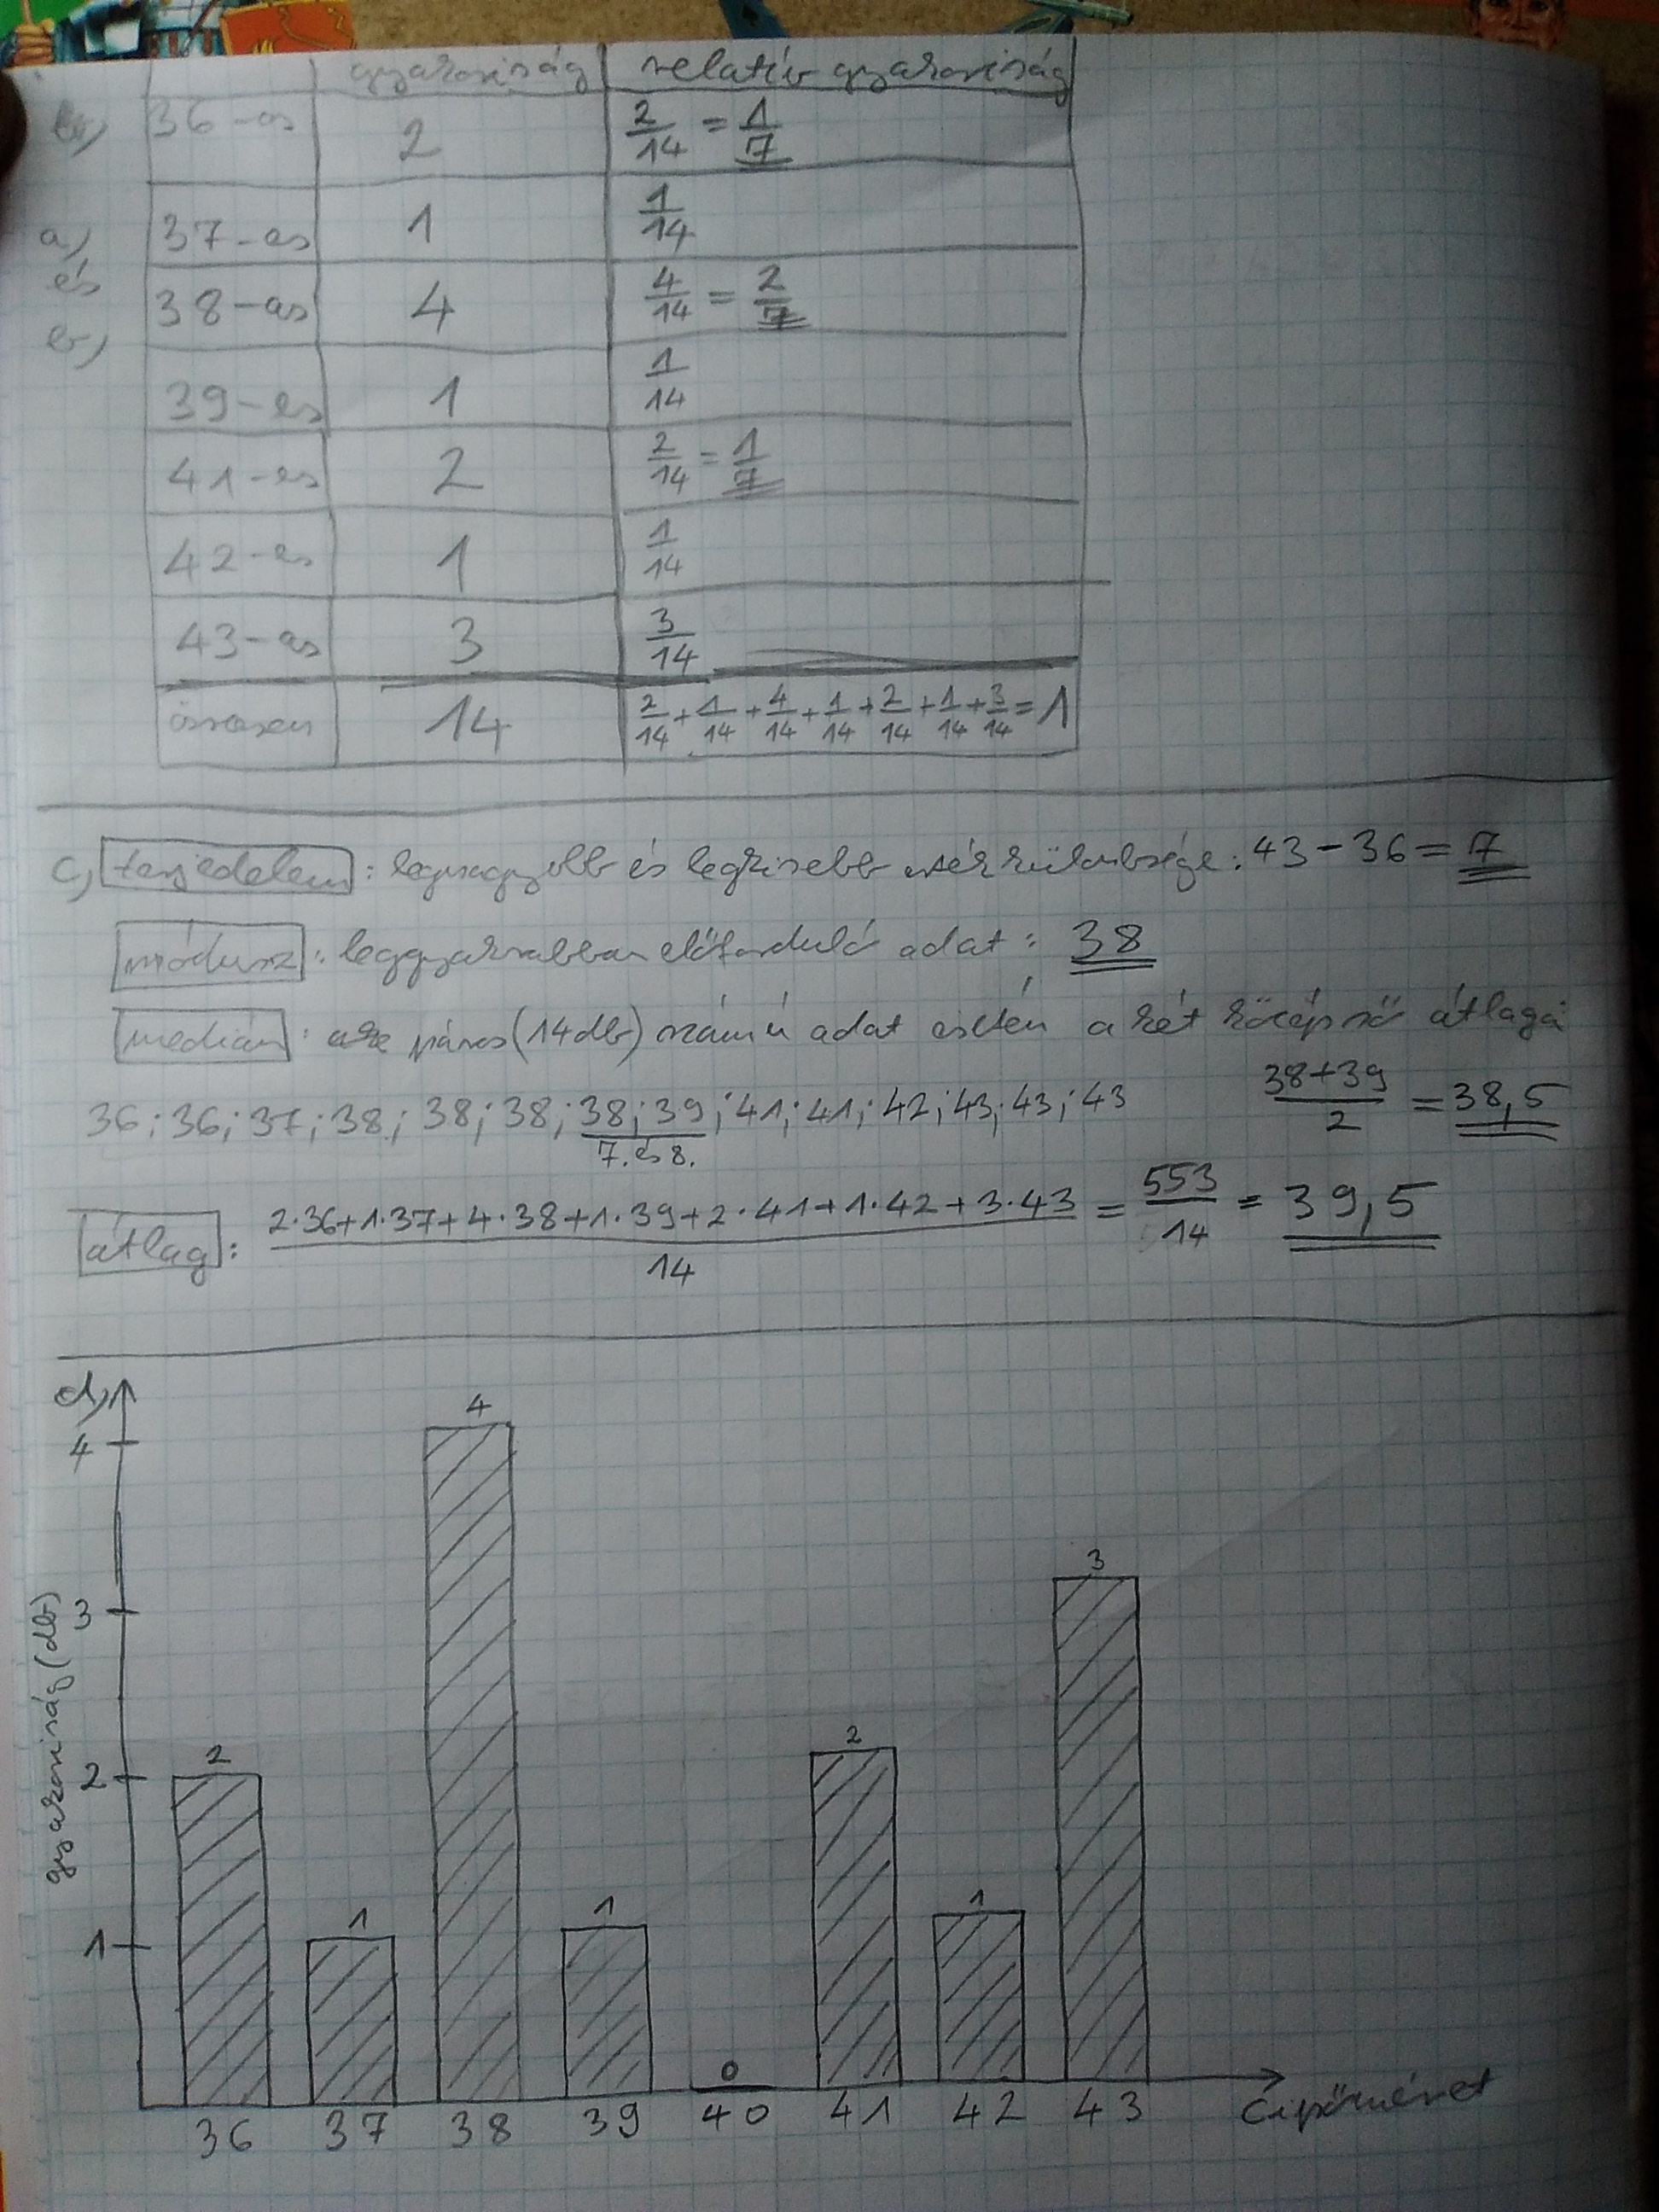 gyakoriság relatív gyakoriság
b) 36-os 2 2/14 = 1/7
a) 37-es 1 1/14
és
38-as 4 4/14 = 2/7
b)
39-es 1 1/14
41-es 2 2/14 = 1/7
42-es 1 1/14
43-as 3 3/14
összesen 14 2/14 + 1/14 + 4/14 + 1/14 + 2/14 + 1/14 + 3/14 = 1
c) terjedelem: legnagyobb és legkisebb méret különbsége: 43 - 36 = 7
módusz: leggyakrabban előforduló adat: 38
medián: páros (14 db) számú adat esetén a két középső átlaga
36; 36; 37; 38; 38; 38; 38; 39; 41; 41; 42; 43; 43; 43 (38+39)/2 = 38,5
7. és 8.
átlag: (2·36+1·37+4·38+1·39+2·41+1·42+3·43)/14 = 553/14 = 39,5
d)
gyakoriság (db)
4
3
2
1
2 1 4 1 0 2 1 3
36 37 38 39 40 41 42 43 cipőméret